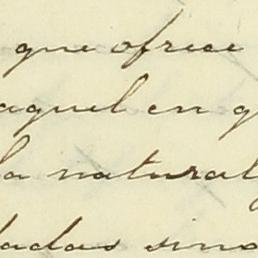 que ofrece
aquel en q
la natural
dadas sino